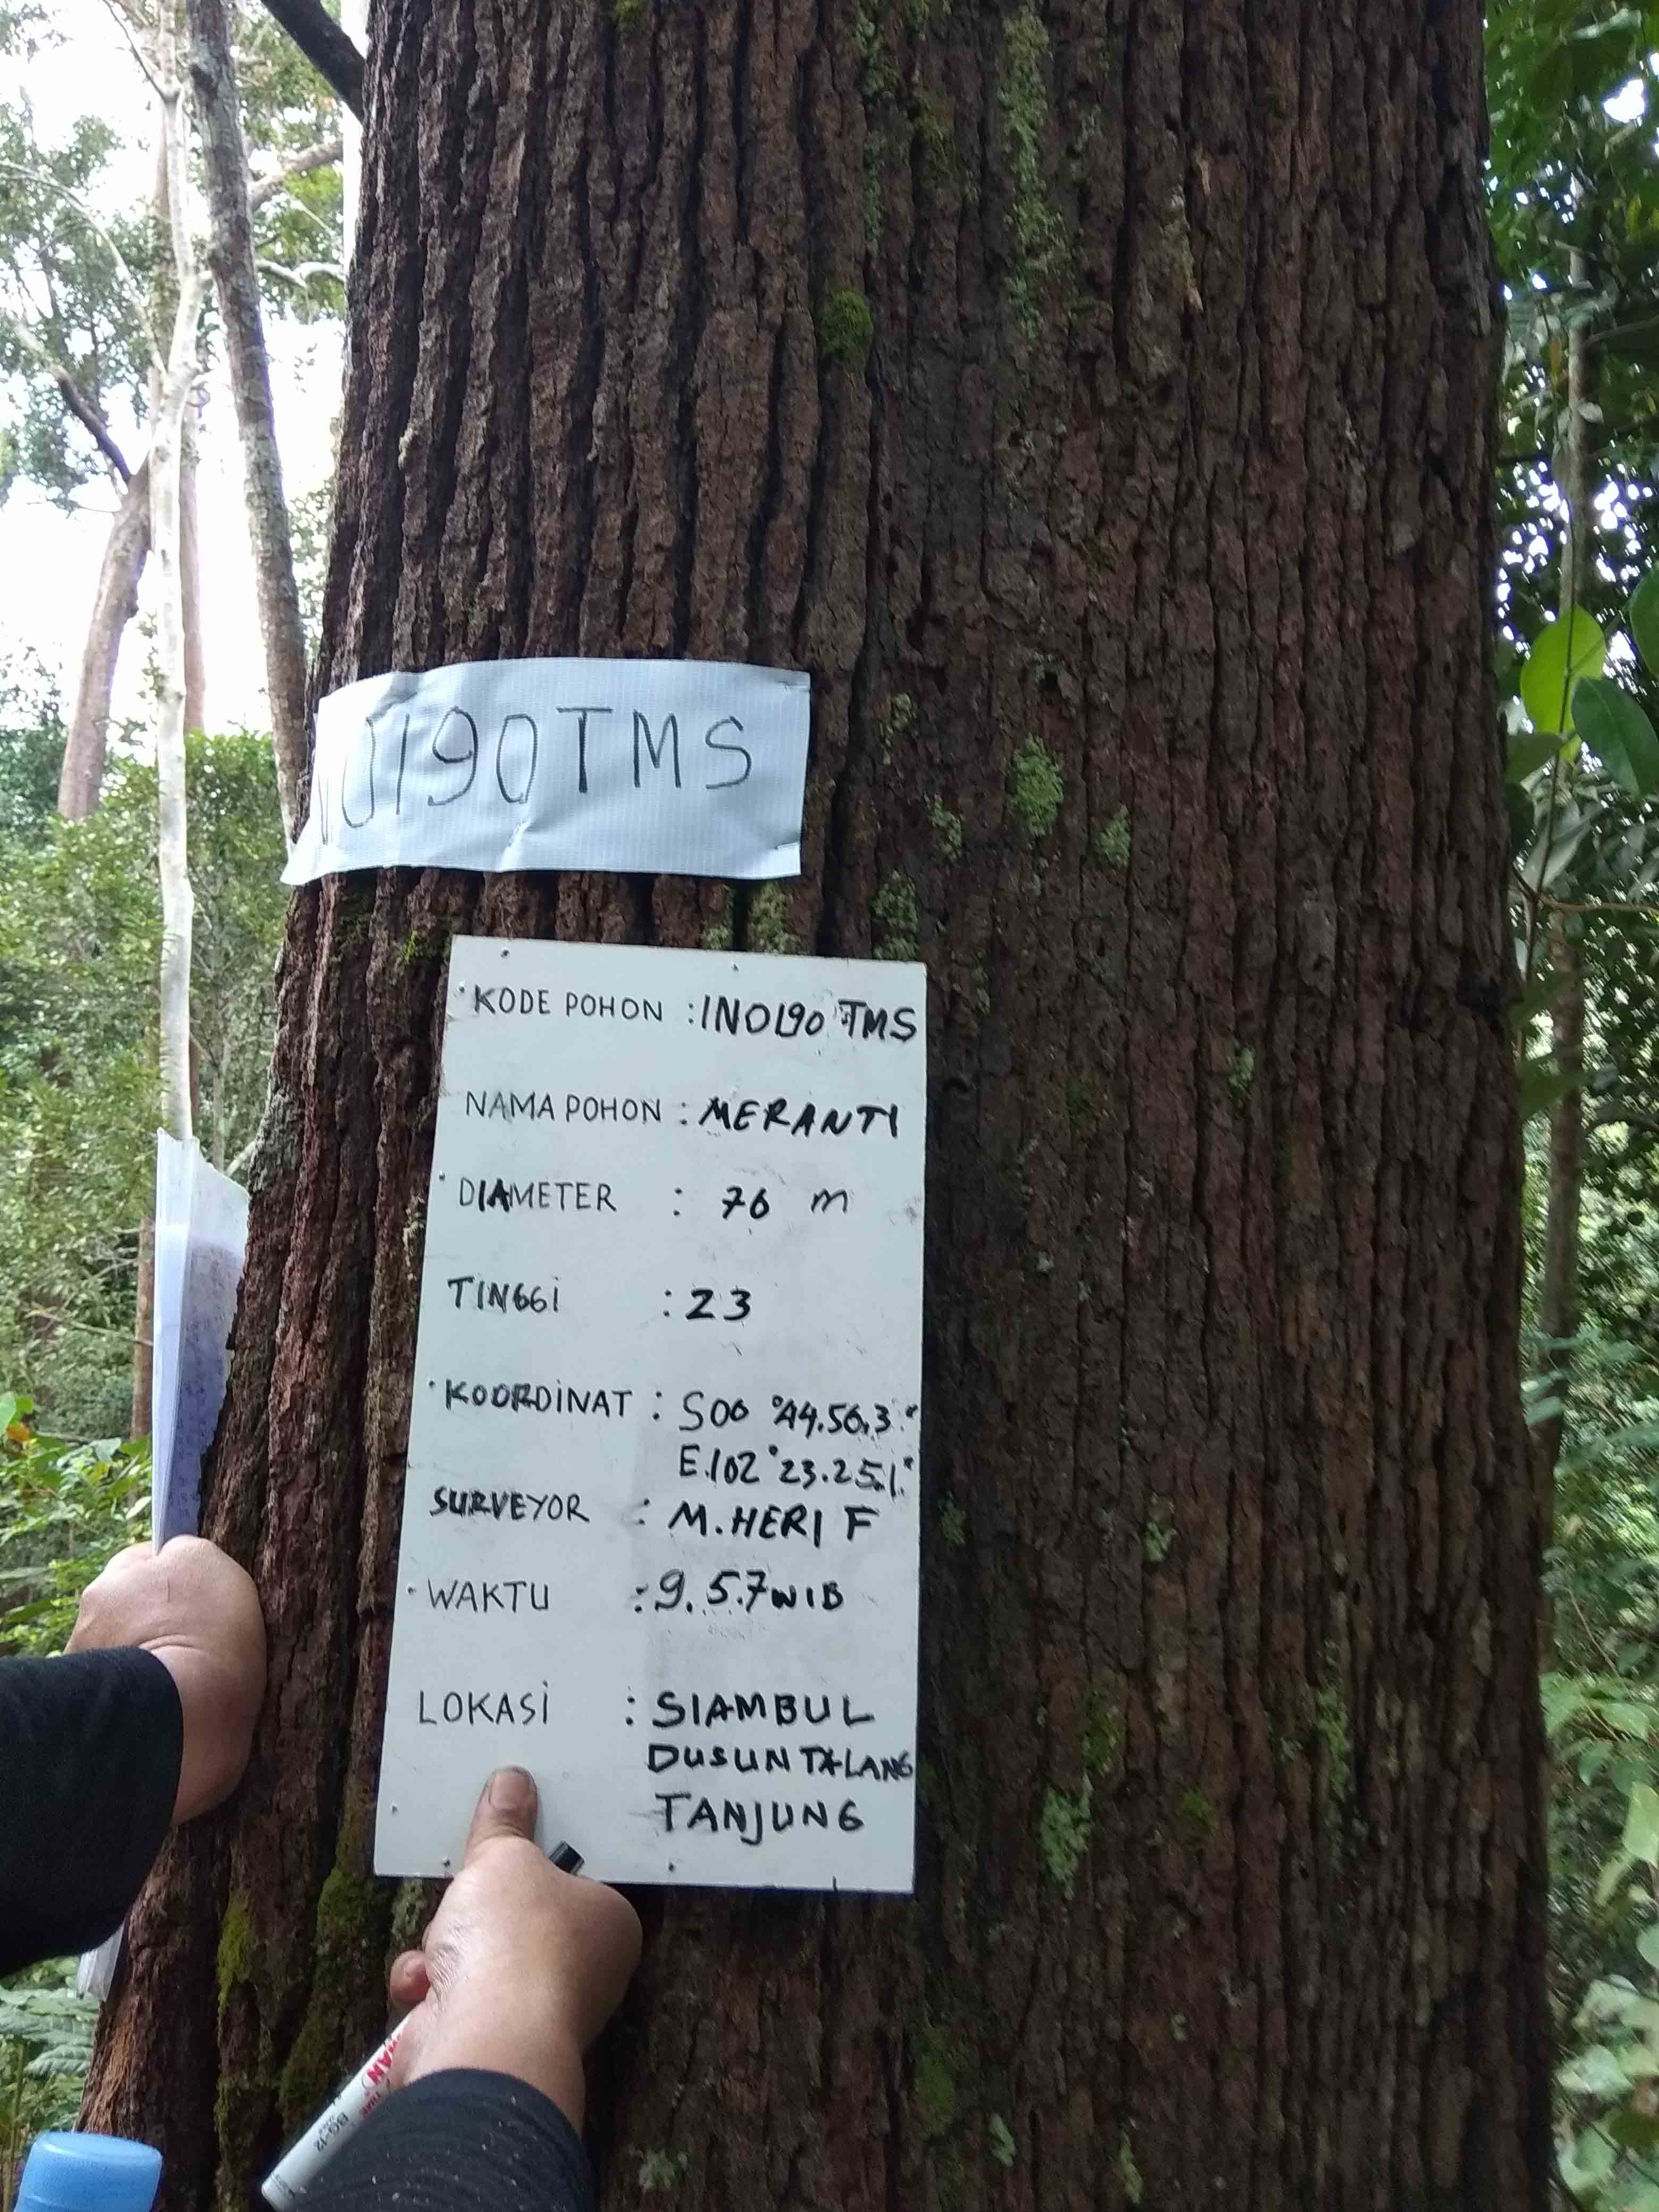 N0190TMS
KODE POHON : IN0190 TMS
NAMA POHON : MERANTI
DIAMETER : 76 m
TINGGI : 23
KOORDINAT : S00 °44.56.3"
E.102°23.25.1"
SURVEYOR : M.HERI F
WAKTU : 9.57 WIB
LOKASI : SIAMBUL
DUSUN TALANG
TANJUNG
BG-12